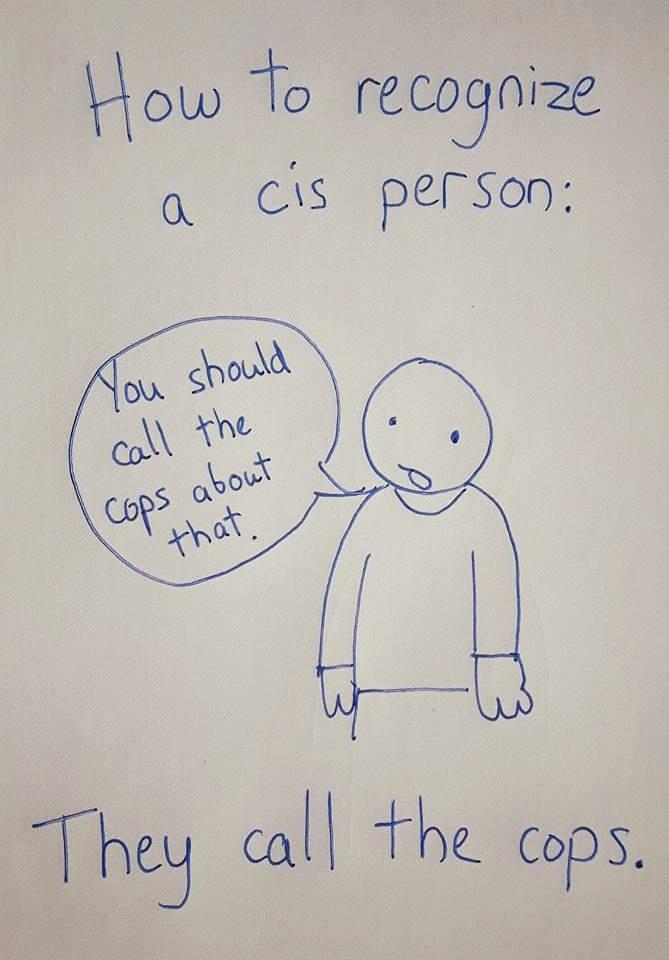 How to recognize
a cis person:
You should
call the
cops about
that.
They call the cops.